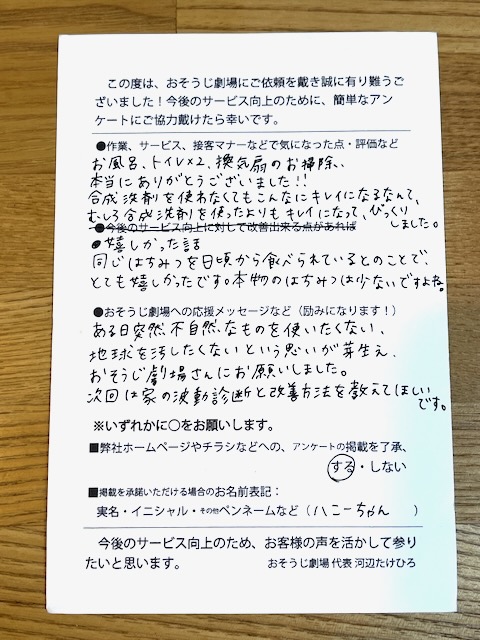 この度は、おそうじ劇場にご依頼を戴き誠に有り難うご
ざいました！今後のサービス向上のために、簡単なアン
ケートにご協力戴けたら幸いです。
●作業、サービス、接客マナーなどで気になった点・評価など
お風呂、トイレ×2、換気扇のお掃除、
本当にありがとうございました!!
合成洗剤を使わなくてもこんなにキレイになるなんて、
むしろ合成洗剤を使ったよりもキレイになって、びっくり
しました。
●今後のサービス向上に対して改善出来る点があれば
●嬉しかった話
同じはちみつを日頃から食べられているとのことで、
とても嬉しかったです。本物のはちみつは少ないですよね。
●おそうじ劇場への応援メッセージなど（励みになります！）
ある日突然、不自然なものを使いたくない、
地球を汚したくないという思いが芽生え、
おそうじ劇場さんにお願いしました。
次回は家の波動診断と改善方法を教えてほしい
です。
※いずれかに〇をお願いします。
■弊社ホームページやチラシなどへの、アンケートの掲載を了承、
する・しない
■掲載を承諾いただける場合のお名前表記：
実名・イニシャル・その他ペンネームなど（ハニーちゃん）
今後のサービス向上のため、お客様の声を活かして参り
たいと思います。
おそうじ劇場 代表 河辺たけひろ